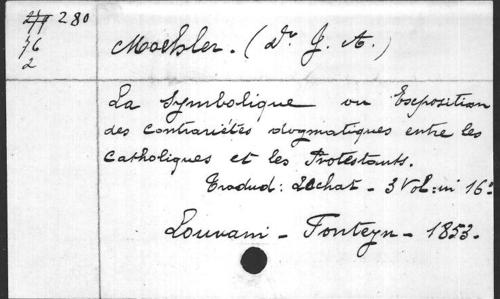 280
76
2
Moehler. (Dr J. A.)
La Symbolique ou Exposition
des contrariétés dogmatiques entre les
catholiques et les Protestants.
Tradud: Lachat - 3 Vol: in 16º
Louvain - Fonteyn - 1853.